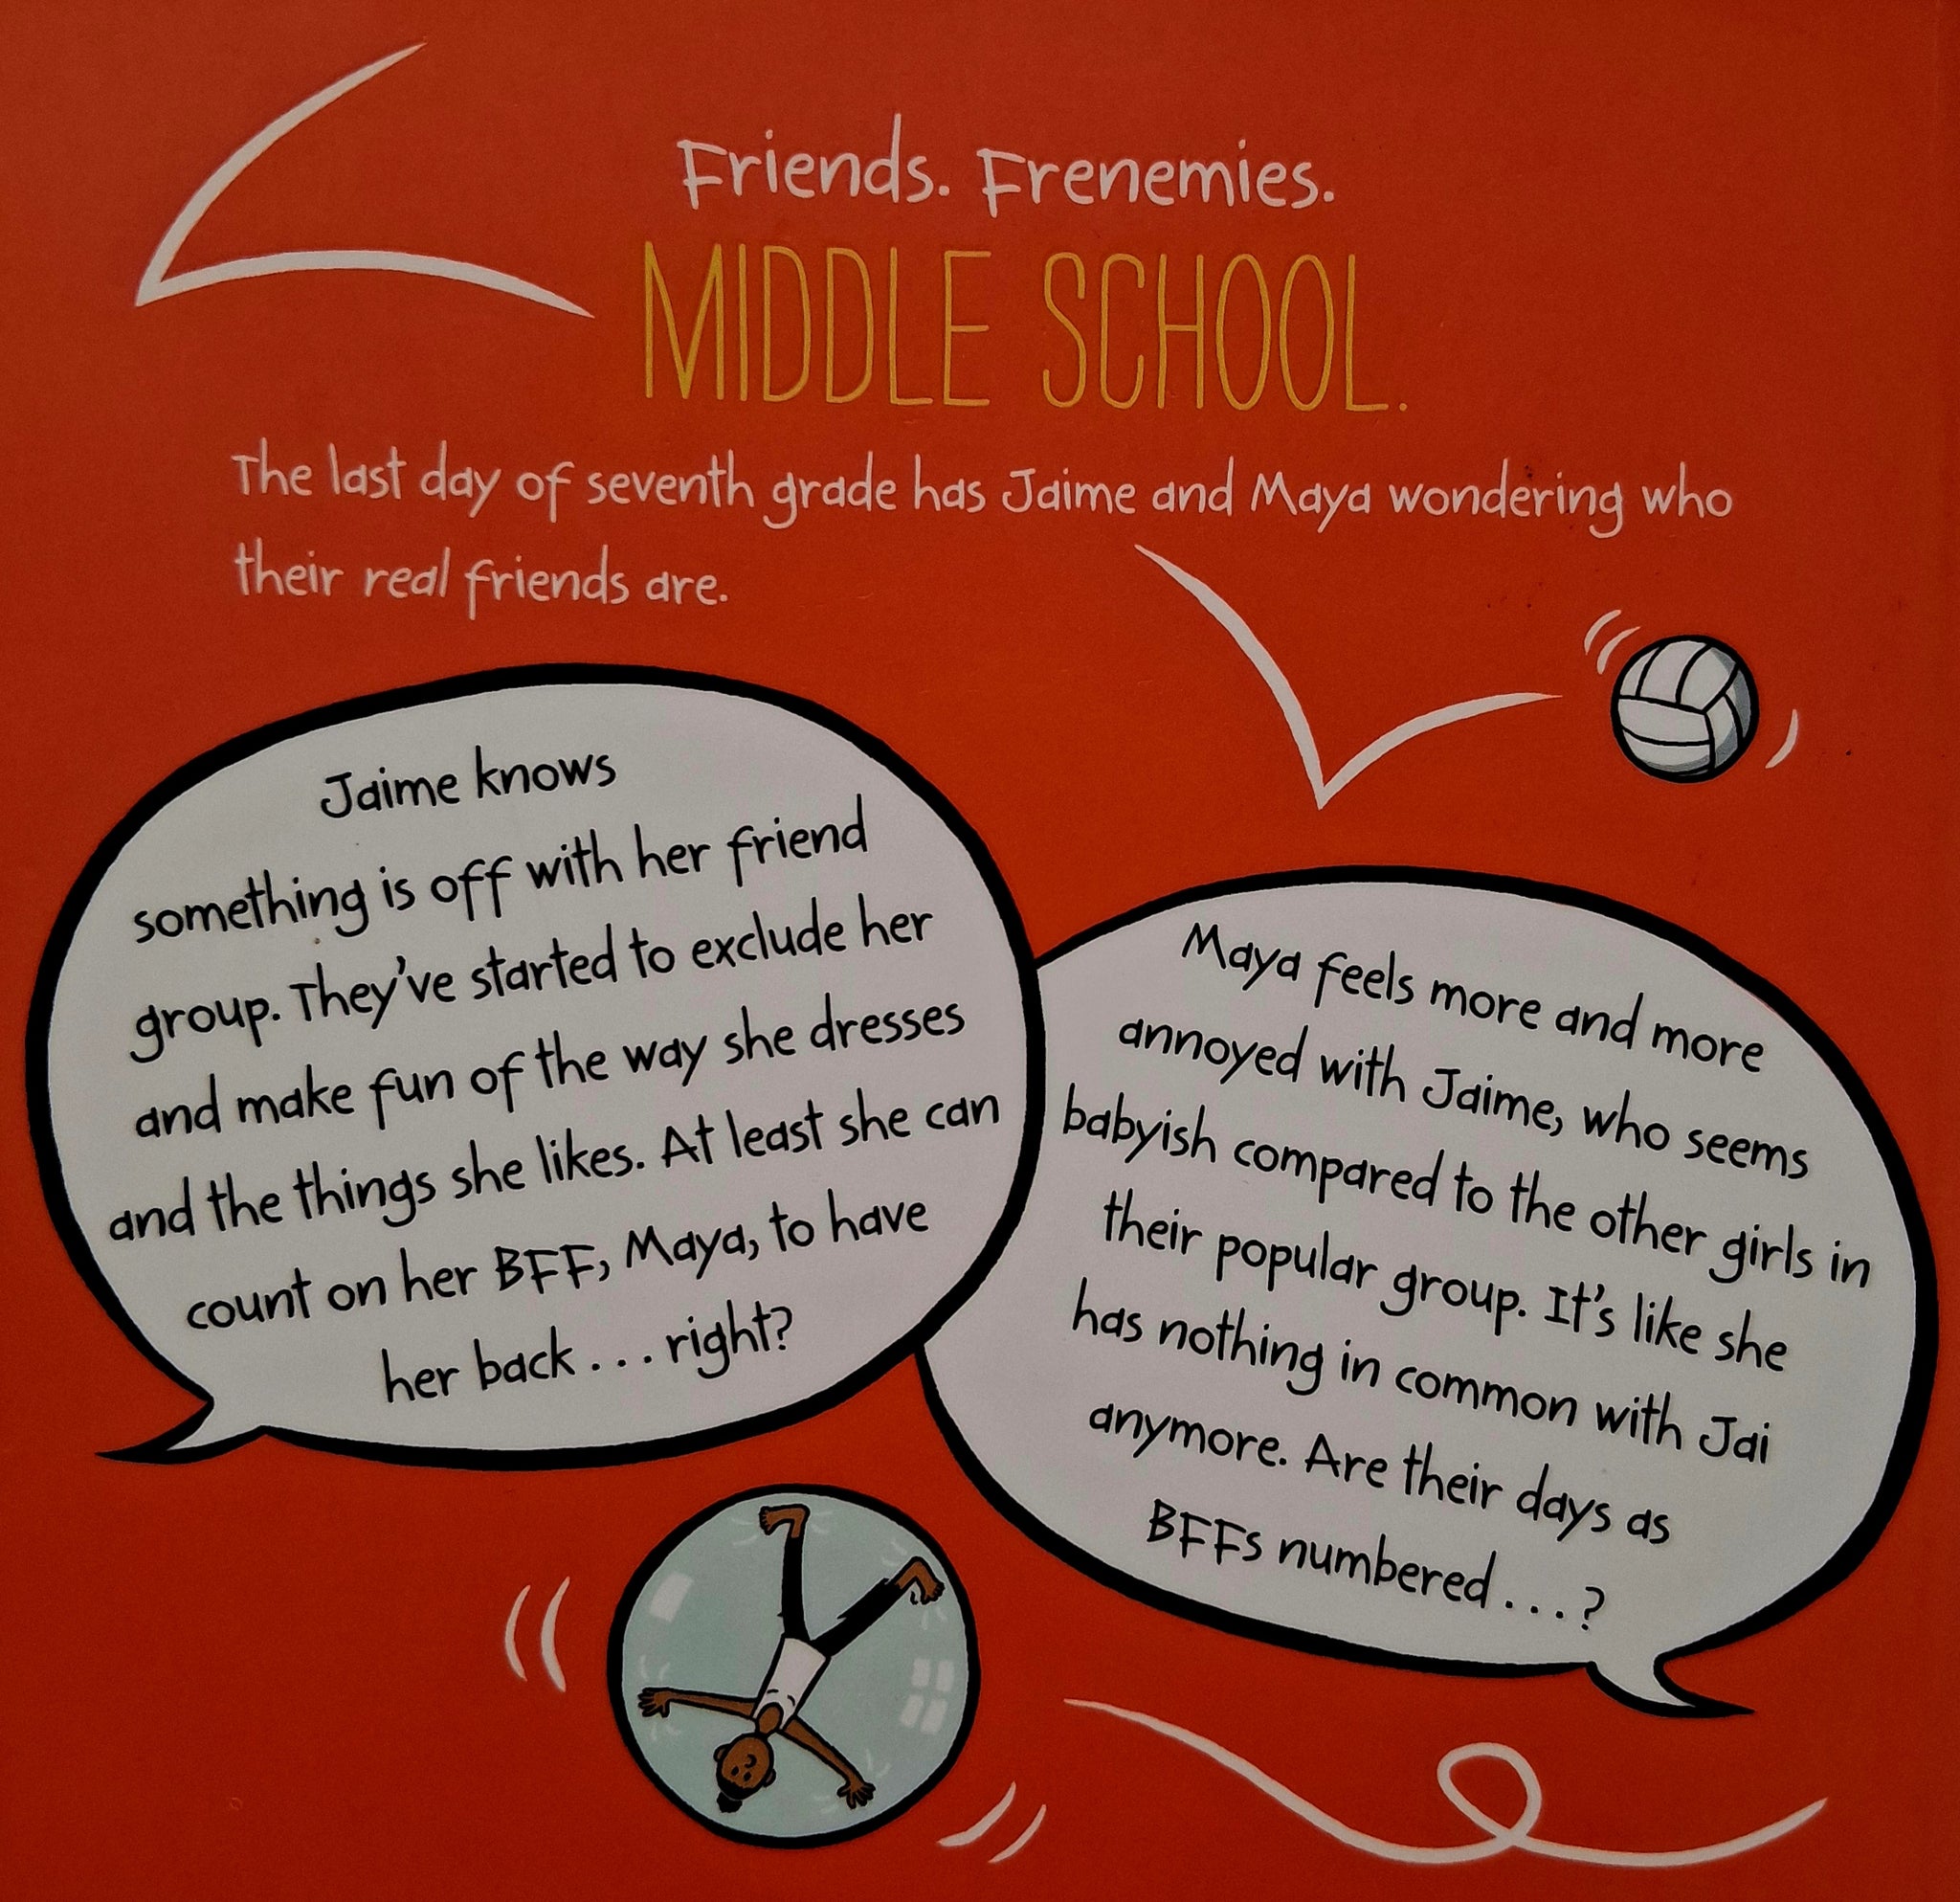 Friends. Frenemies.
MIDDLE SCHOOL.
The last day of seventh grade has Jaime and Maya wondering who
their real friends are.
Jaime knows
something is off with her friend
group. They've started to exclude her
and make fun of the way she dresses
and the things she likes. At least she can
count on her BFF, Maya, to have
her back . . . right?
Maya feels more and more
annoyed with Jaime, who seems
babyish compared to the other girls in
their popular group. It's like she
has nothing in common with Jai
anymore. Are their days as
BFFs numbered . . . ?